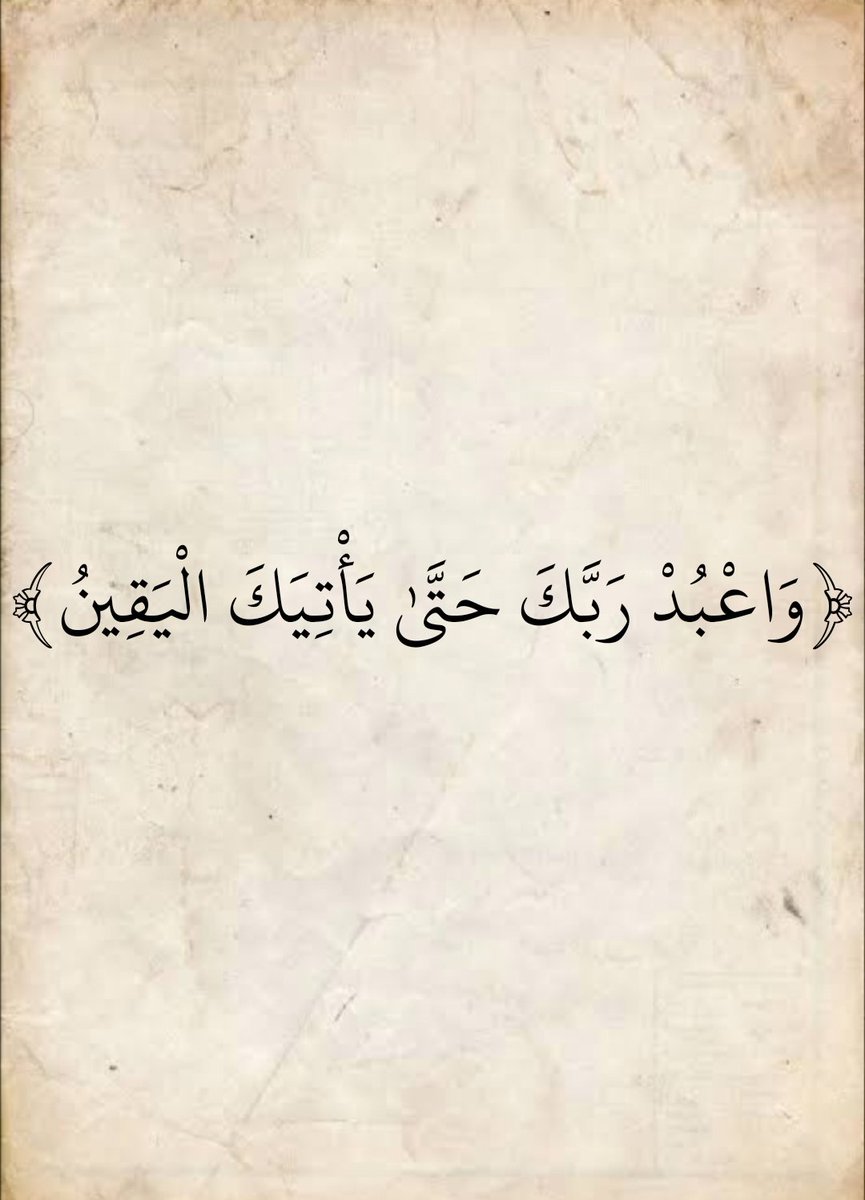 ﴿وَاعْبُدْ رَبَّكَ حَتَّىٰ يَأْتِيَكَ الْيَقِينُ﴾